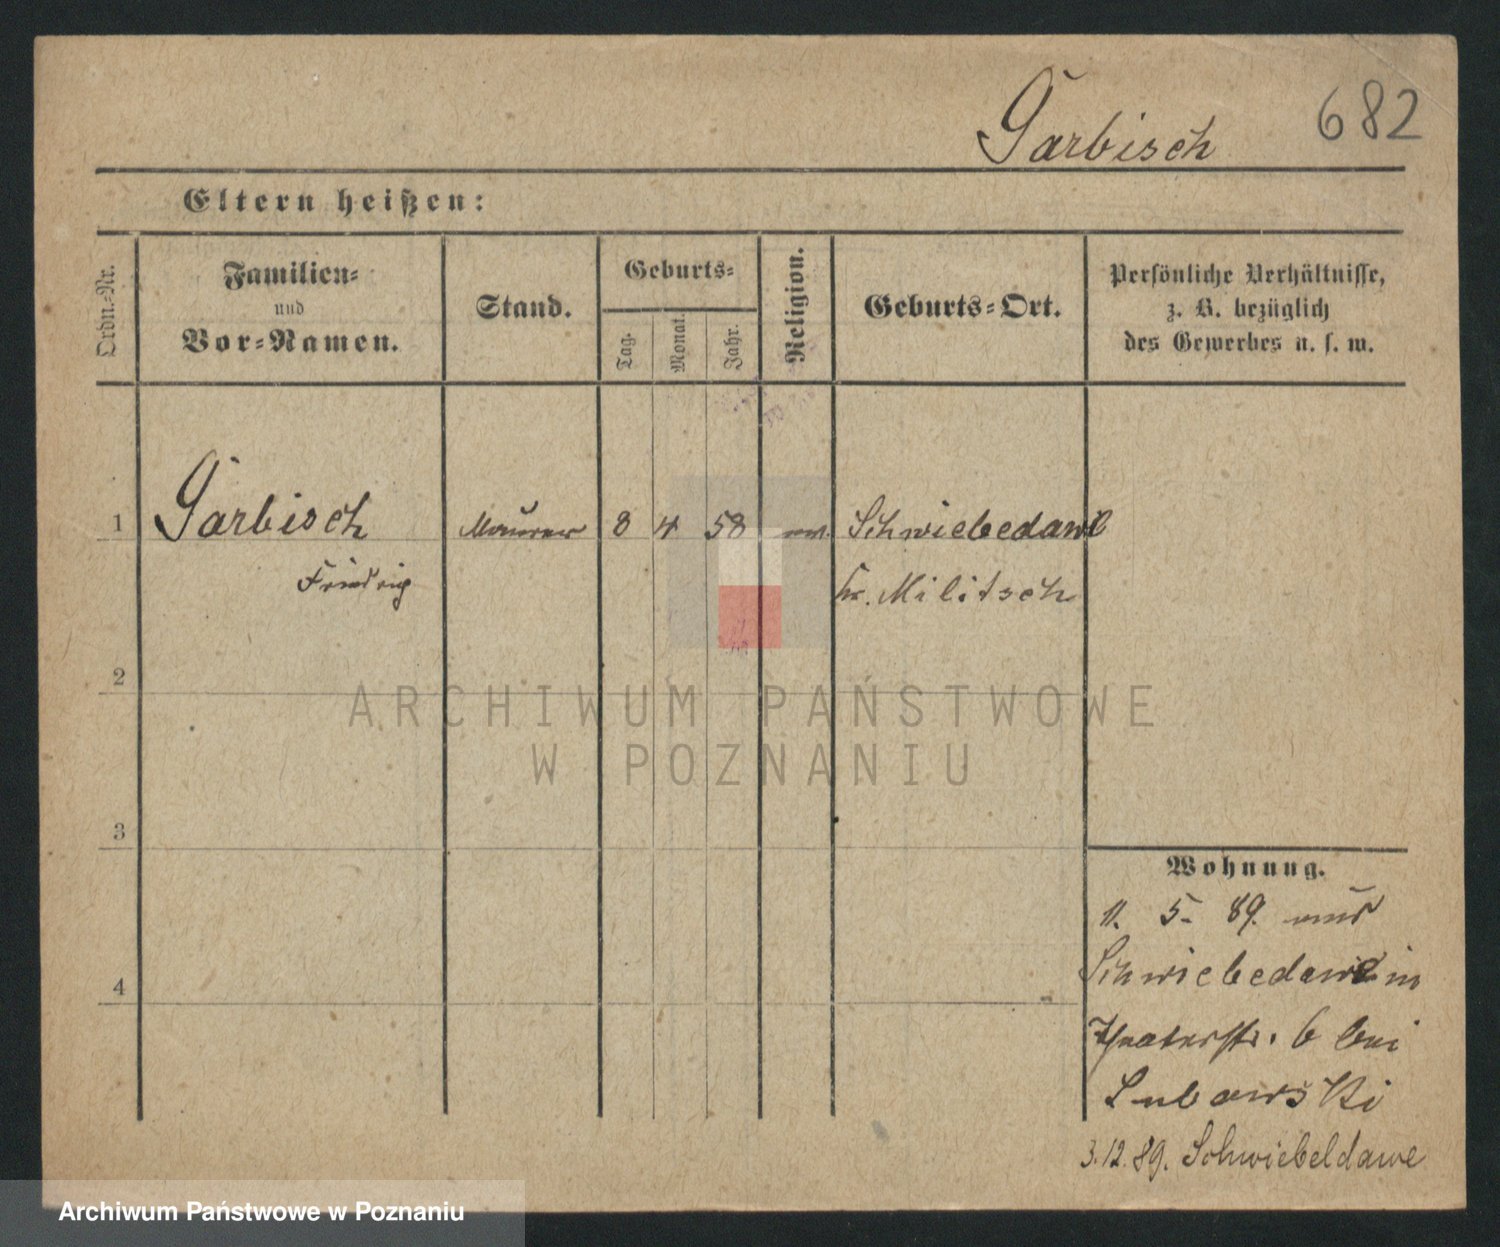 Garbisch
682
Eltern heißen:
Ordn.-Nr.
Familien-
und
Vor-Namen.
Stand.
Geburts-
Tag.
Monat.
Jahr.
Religion.
Geburts-Ort.
Persönliche Verhältnisse,
z. B. bezüglich
des Gewerbes u. s. w.
1 Garbisch Maurer 8 4 58 ev. Schwiebedawe
Friedrich Kr. Militsch
2
ARCHIWUM PAŃSTWOWE
W POZNANIU
3
Wohnung.
11. 5. 89. aus
Schwiebedawe in
4
Theaterstr. 6 bei
Lubawski
3.12.89. Schwiebeldawe
Archiwum Państwowe w Poznaniu